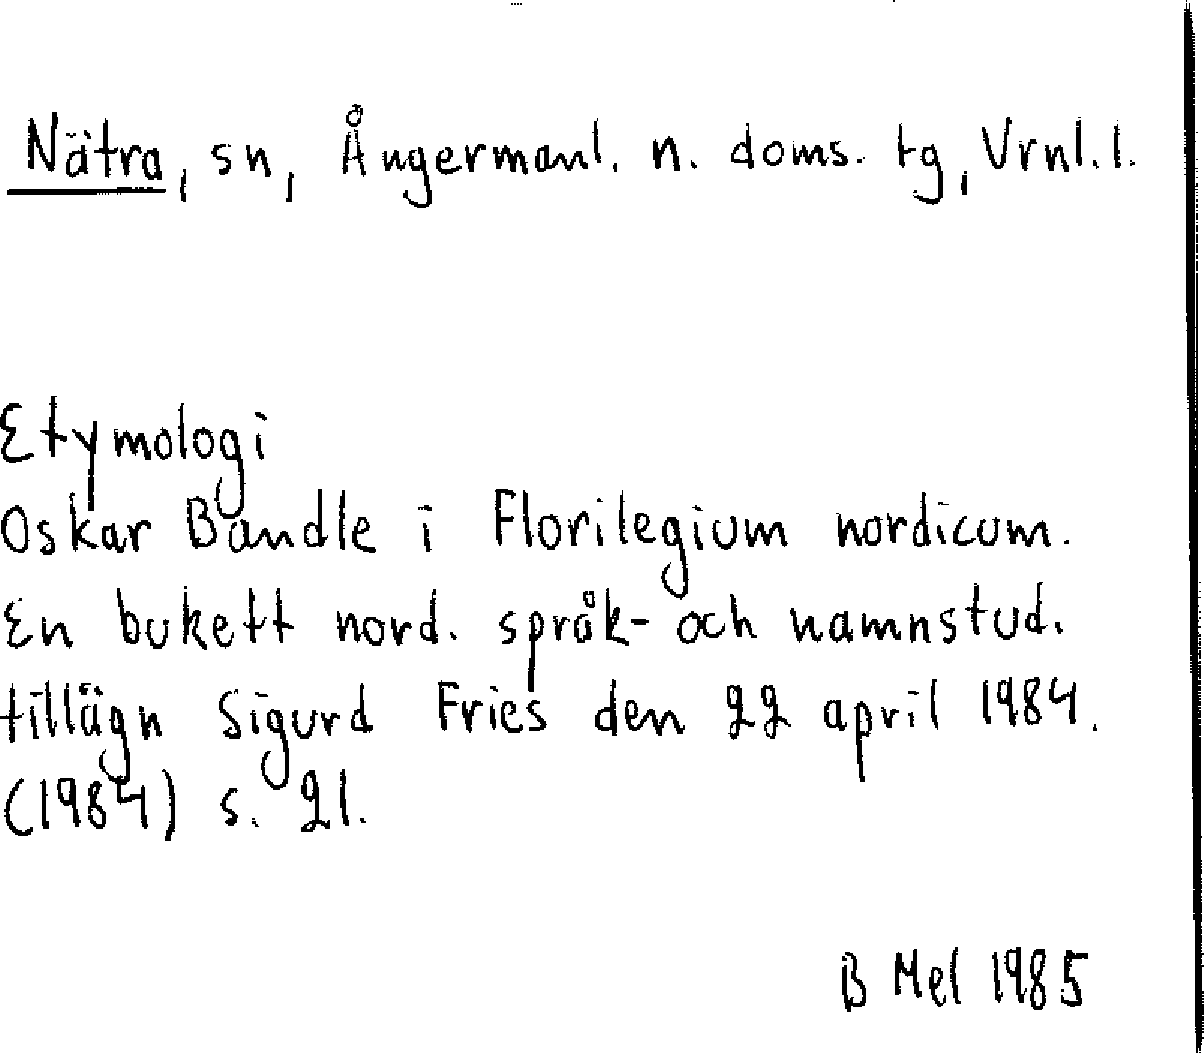 Nätra, sn, Ångermanl. n. doms. tg, Vrnl. l.
Etymologi
Oskar Bandle i Florilegium nordicum.
En bukett nord. språk- och namnstud.
tillägn Sigurd Fries den 22 april 1984.
(1984) s. 21.
B Mel 1985